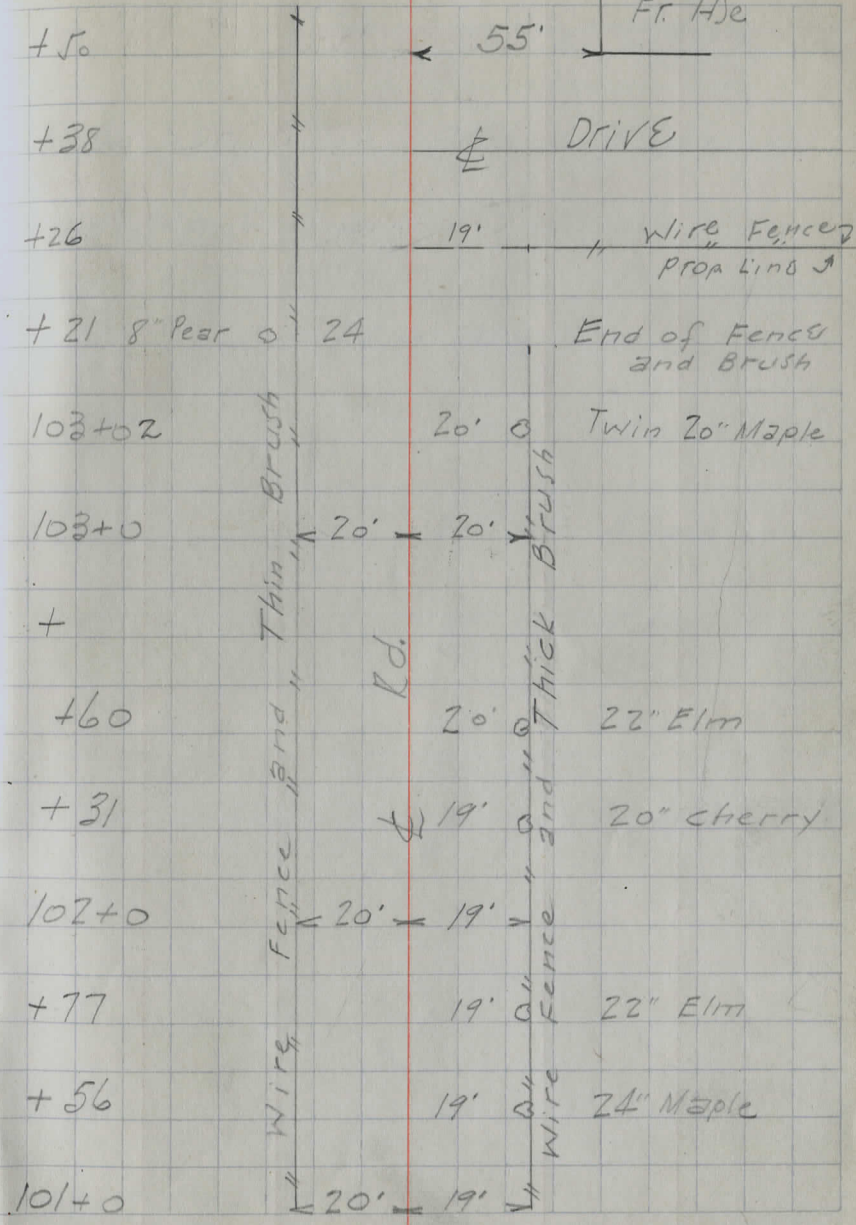 Fr. Hse
+50 55'
+38 ℄ Drive
+26 19' Wire Fence
Prop Line
+21 8" Pear 24 End of Fence
and Brush
103+02 20' Twin 20" Maple
103+0 20' 20'
+
+60 20' 22" Elm
+31 19' 20" Cherry
102+0 20' 19'
+77 19' 22" Elm
+56 19' 24" Maple
101+0 20' 19'
Wire Fence and Thin Brush
℄ Rd.
Wire Fence and Thick Brush